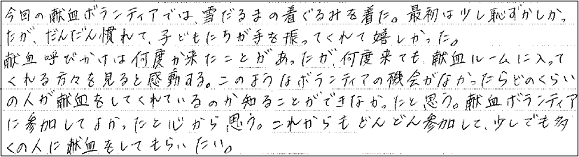 今回の献血ボランティアでは、雪だるまの着ぐるみを着た。最初は少し恥ずかしかっ
たが、だんだん慣れて、子どもたちが手を振ってくれて嬉しかった。
献血呼びかけは何度か来たことがあったが、何度来ても、献血ルームに入って
くれる方々を見ると感動する。このようなボランティアの機会がなかったらどのくらい
の人が献血をしてくれているのか知ることができなかったと思う。献血ボランティア
に参加してよかったと心から思う。これからもどんどん参加して、少しでも多
くの人に献血をしてもらいたい。